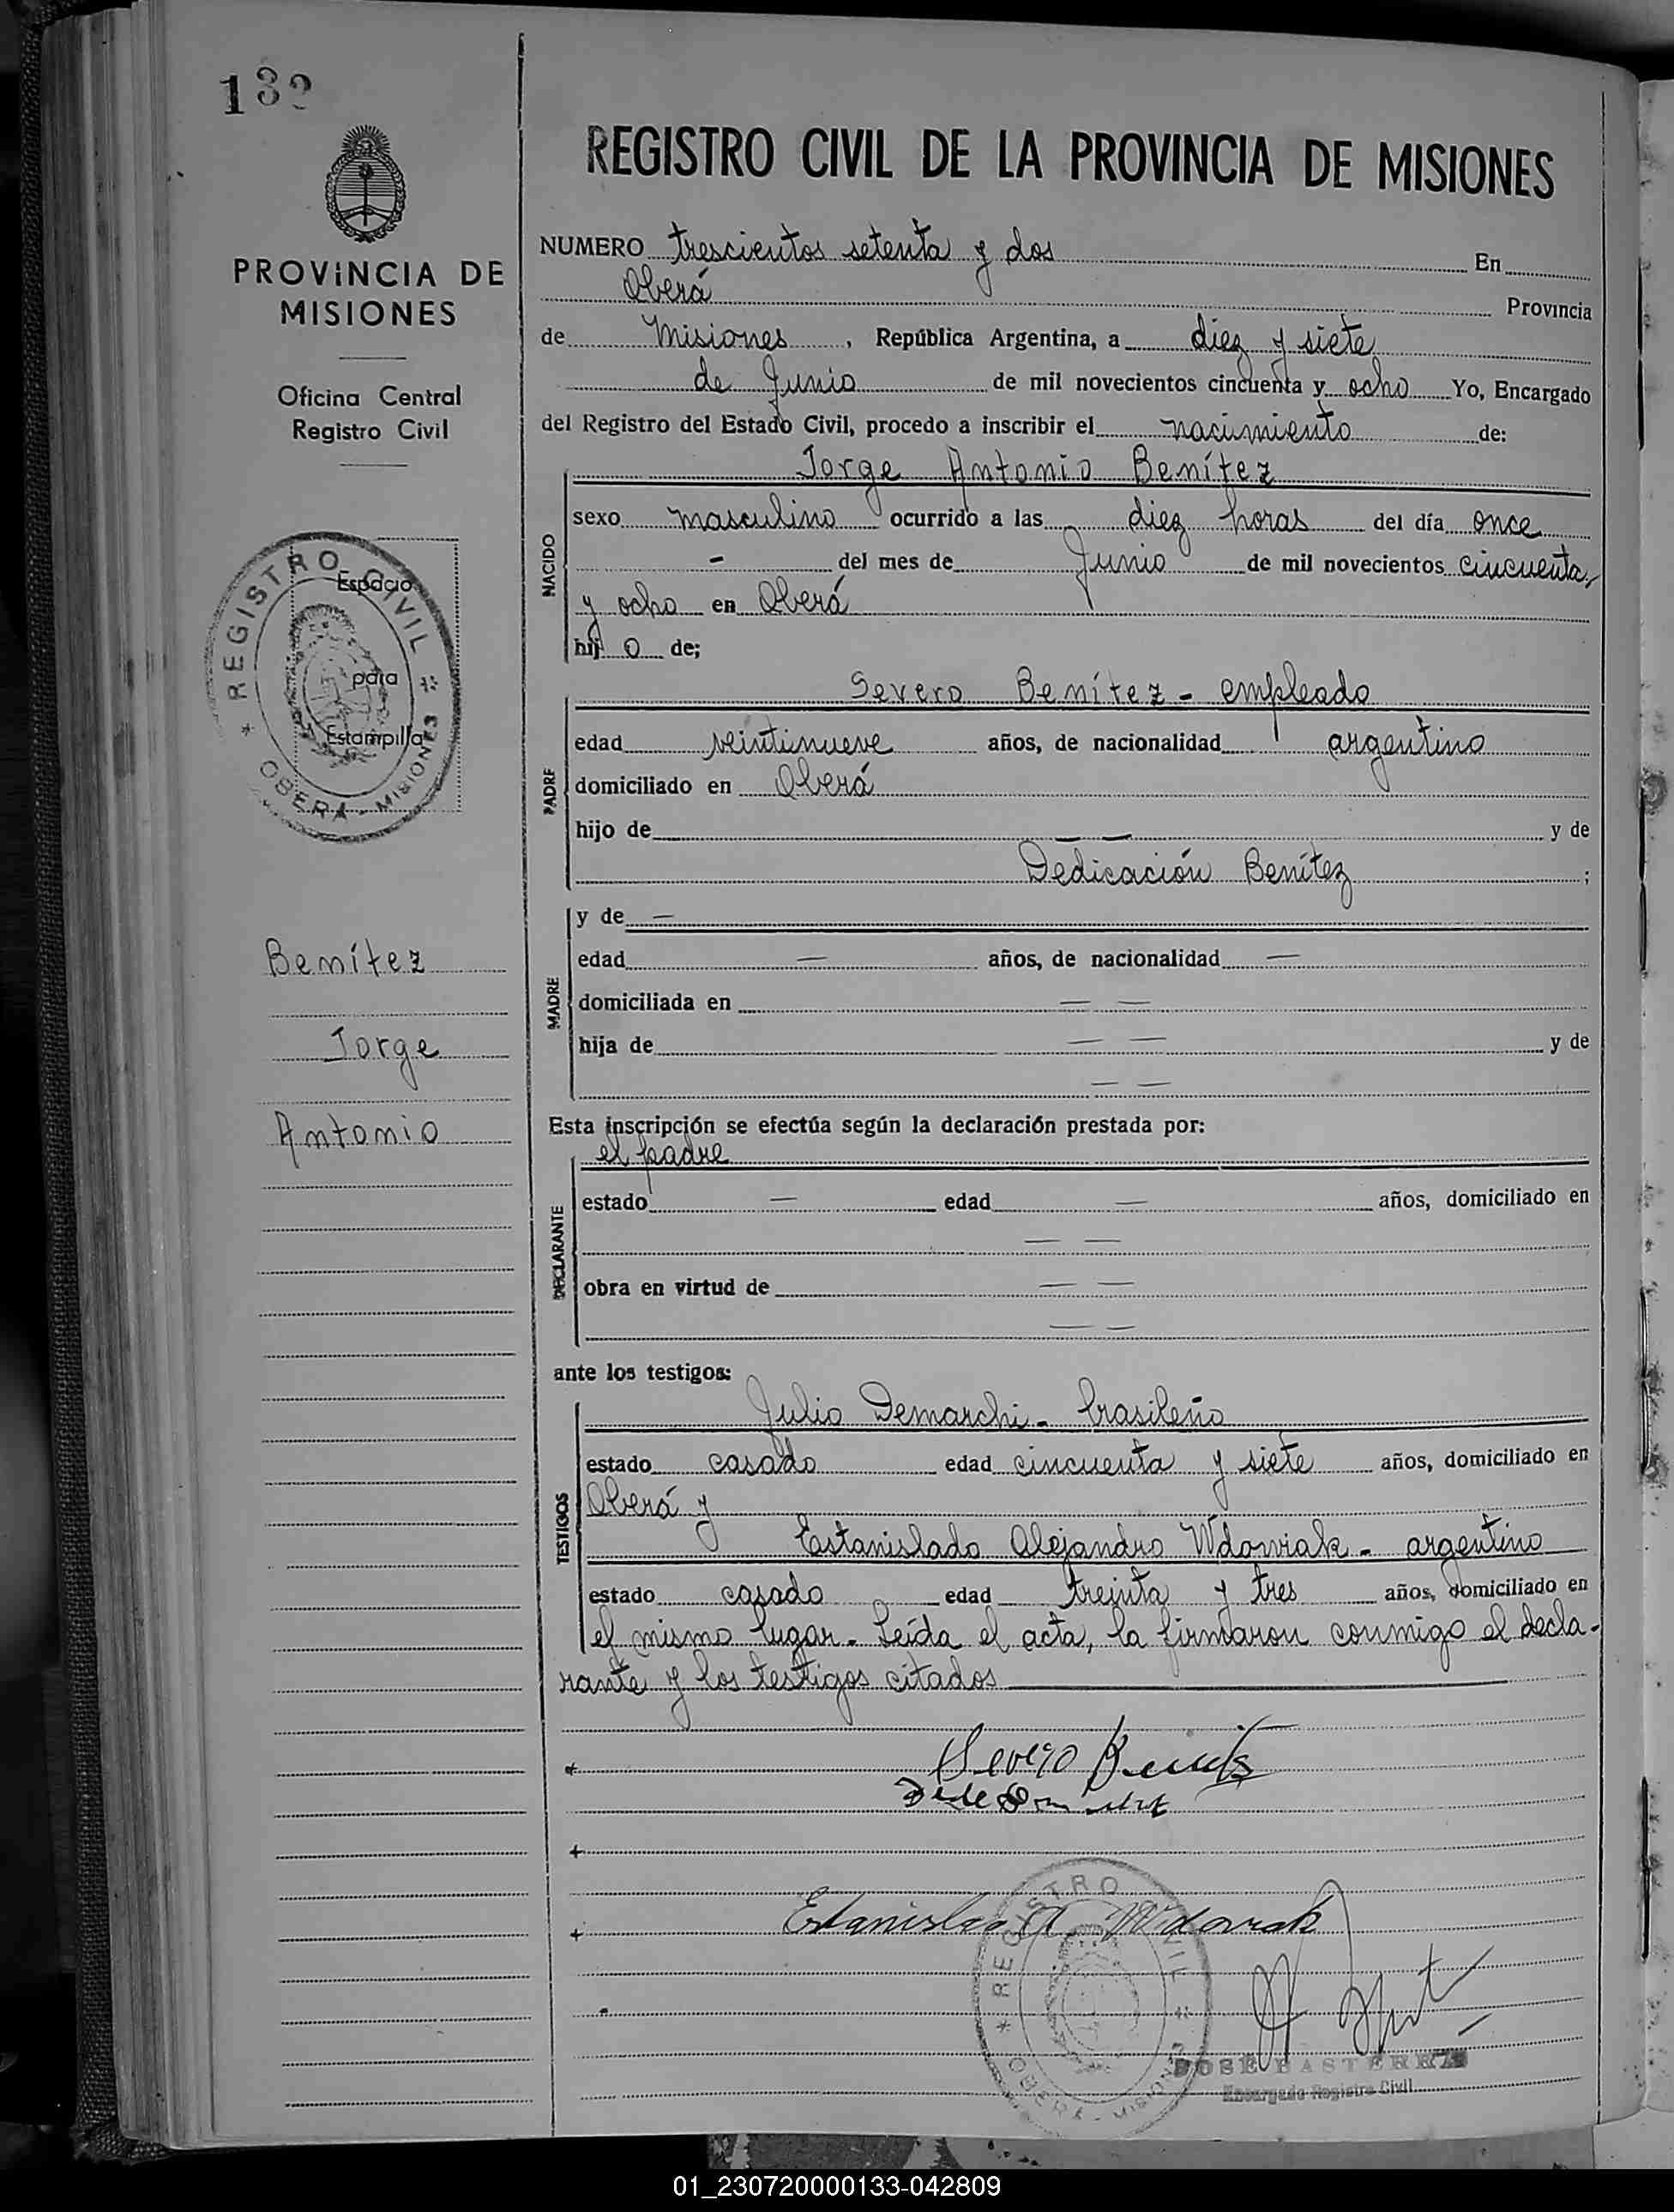 132
PROVINCIA DE
MISIONES
Oficina Central
Registro Civil
REGISTRO CIVIL
Espacio
para
Estampilla
OBERA - MISIONES
Benítez
Jorge
Antonio
REGISTRO CIVIL DE LA PROVINCIA DE MISIONES
NUMERO trescientos setenta y dos En
Oberá Provincia
de Misiones, República Argentina, a diez y siete
de Junio de mil novecientos cincuenta y ocho Yo, Encargado
del Registro del Estado Civil, procedo a inscribir el nacimiento de:
Jorge Antonio Benítez
NACIDO
sexo masculino ocurrido a las diez horas del día once
- del mes de Junio de mil novecientos cincuenta
y ocho en Oberá
hij o de;
Severo Benítez - empleado
PADRE
edad veintinueve años, de nacionalidad argentino
domiciliado en Oberá
hijo de — — y de
Dedicación Benítez ;
MADRE
y de —
edad — años, de nacionalidad —
domiciliada en — —
hija de — — y de
— —
Esta inscripción se efectúa según la declaración prestada por:
el padre
DECLARANTE
estado — edad — años, domiciliado en
— —
obra en virtud de — —
— —
ante los testigos:
Julio Demarchi - brasileño
TESTIGOS
estado casado edad cincuenta y siete años, domiciliado en
Oberá y
Estanislado Alejandro Wdowiak - argentino
estado casado edad treinta y tres años, domiciliado en
el mismo lugar. Leída el acta, la firmaron conmigo el decla-
rante y los testigos citados
Severo Benitez
Estanislao A. Wdowiak
REGISTRO CIVIL
OBERA - MISIONES
JOSE BASTERRA
Encargado Registro Civil
01_230720000133-042809